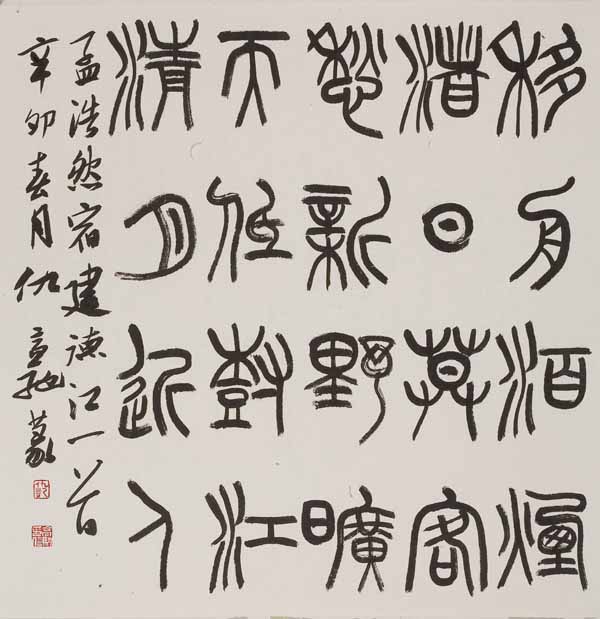 移舟泊煙
渚日莫客
愁新野曠
天低樹江
清月近人
孟浩然宿建德江一首
辛卯春月仇高驰篆